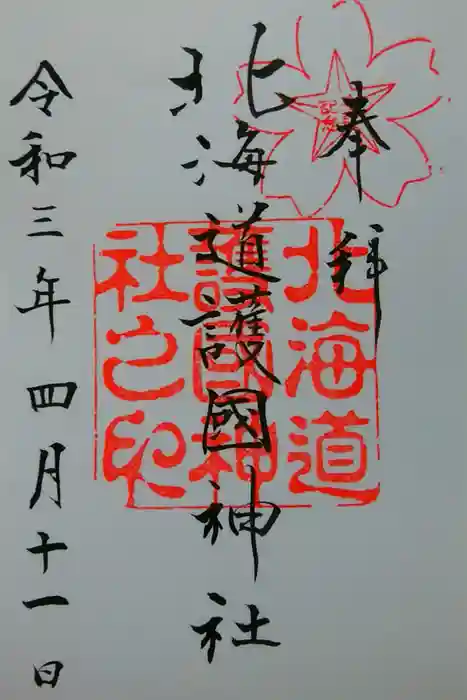 奉拝
北海道護國神社
令和三年四月十一日
北海道
護國神
社之印